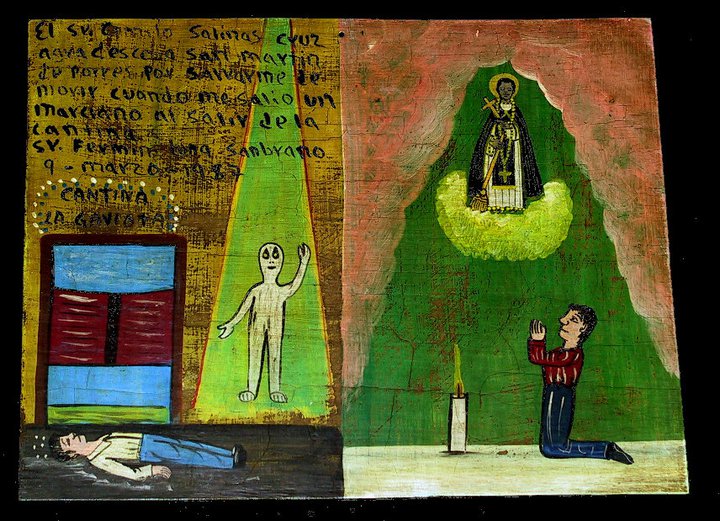 El sr. Camilo Salinas Cruz
agradesco a san martin
de porres por salvarme de
morir cuando me salio un
marciano al salir de la
cantina
sr. Fermin Sanbrano
9 - marzo - 1982
CANTINA
LA GAVIOTA